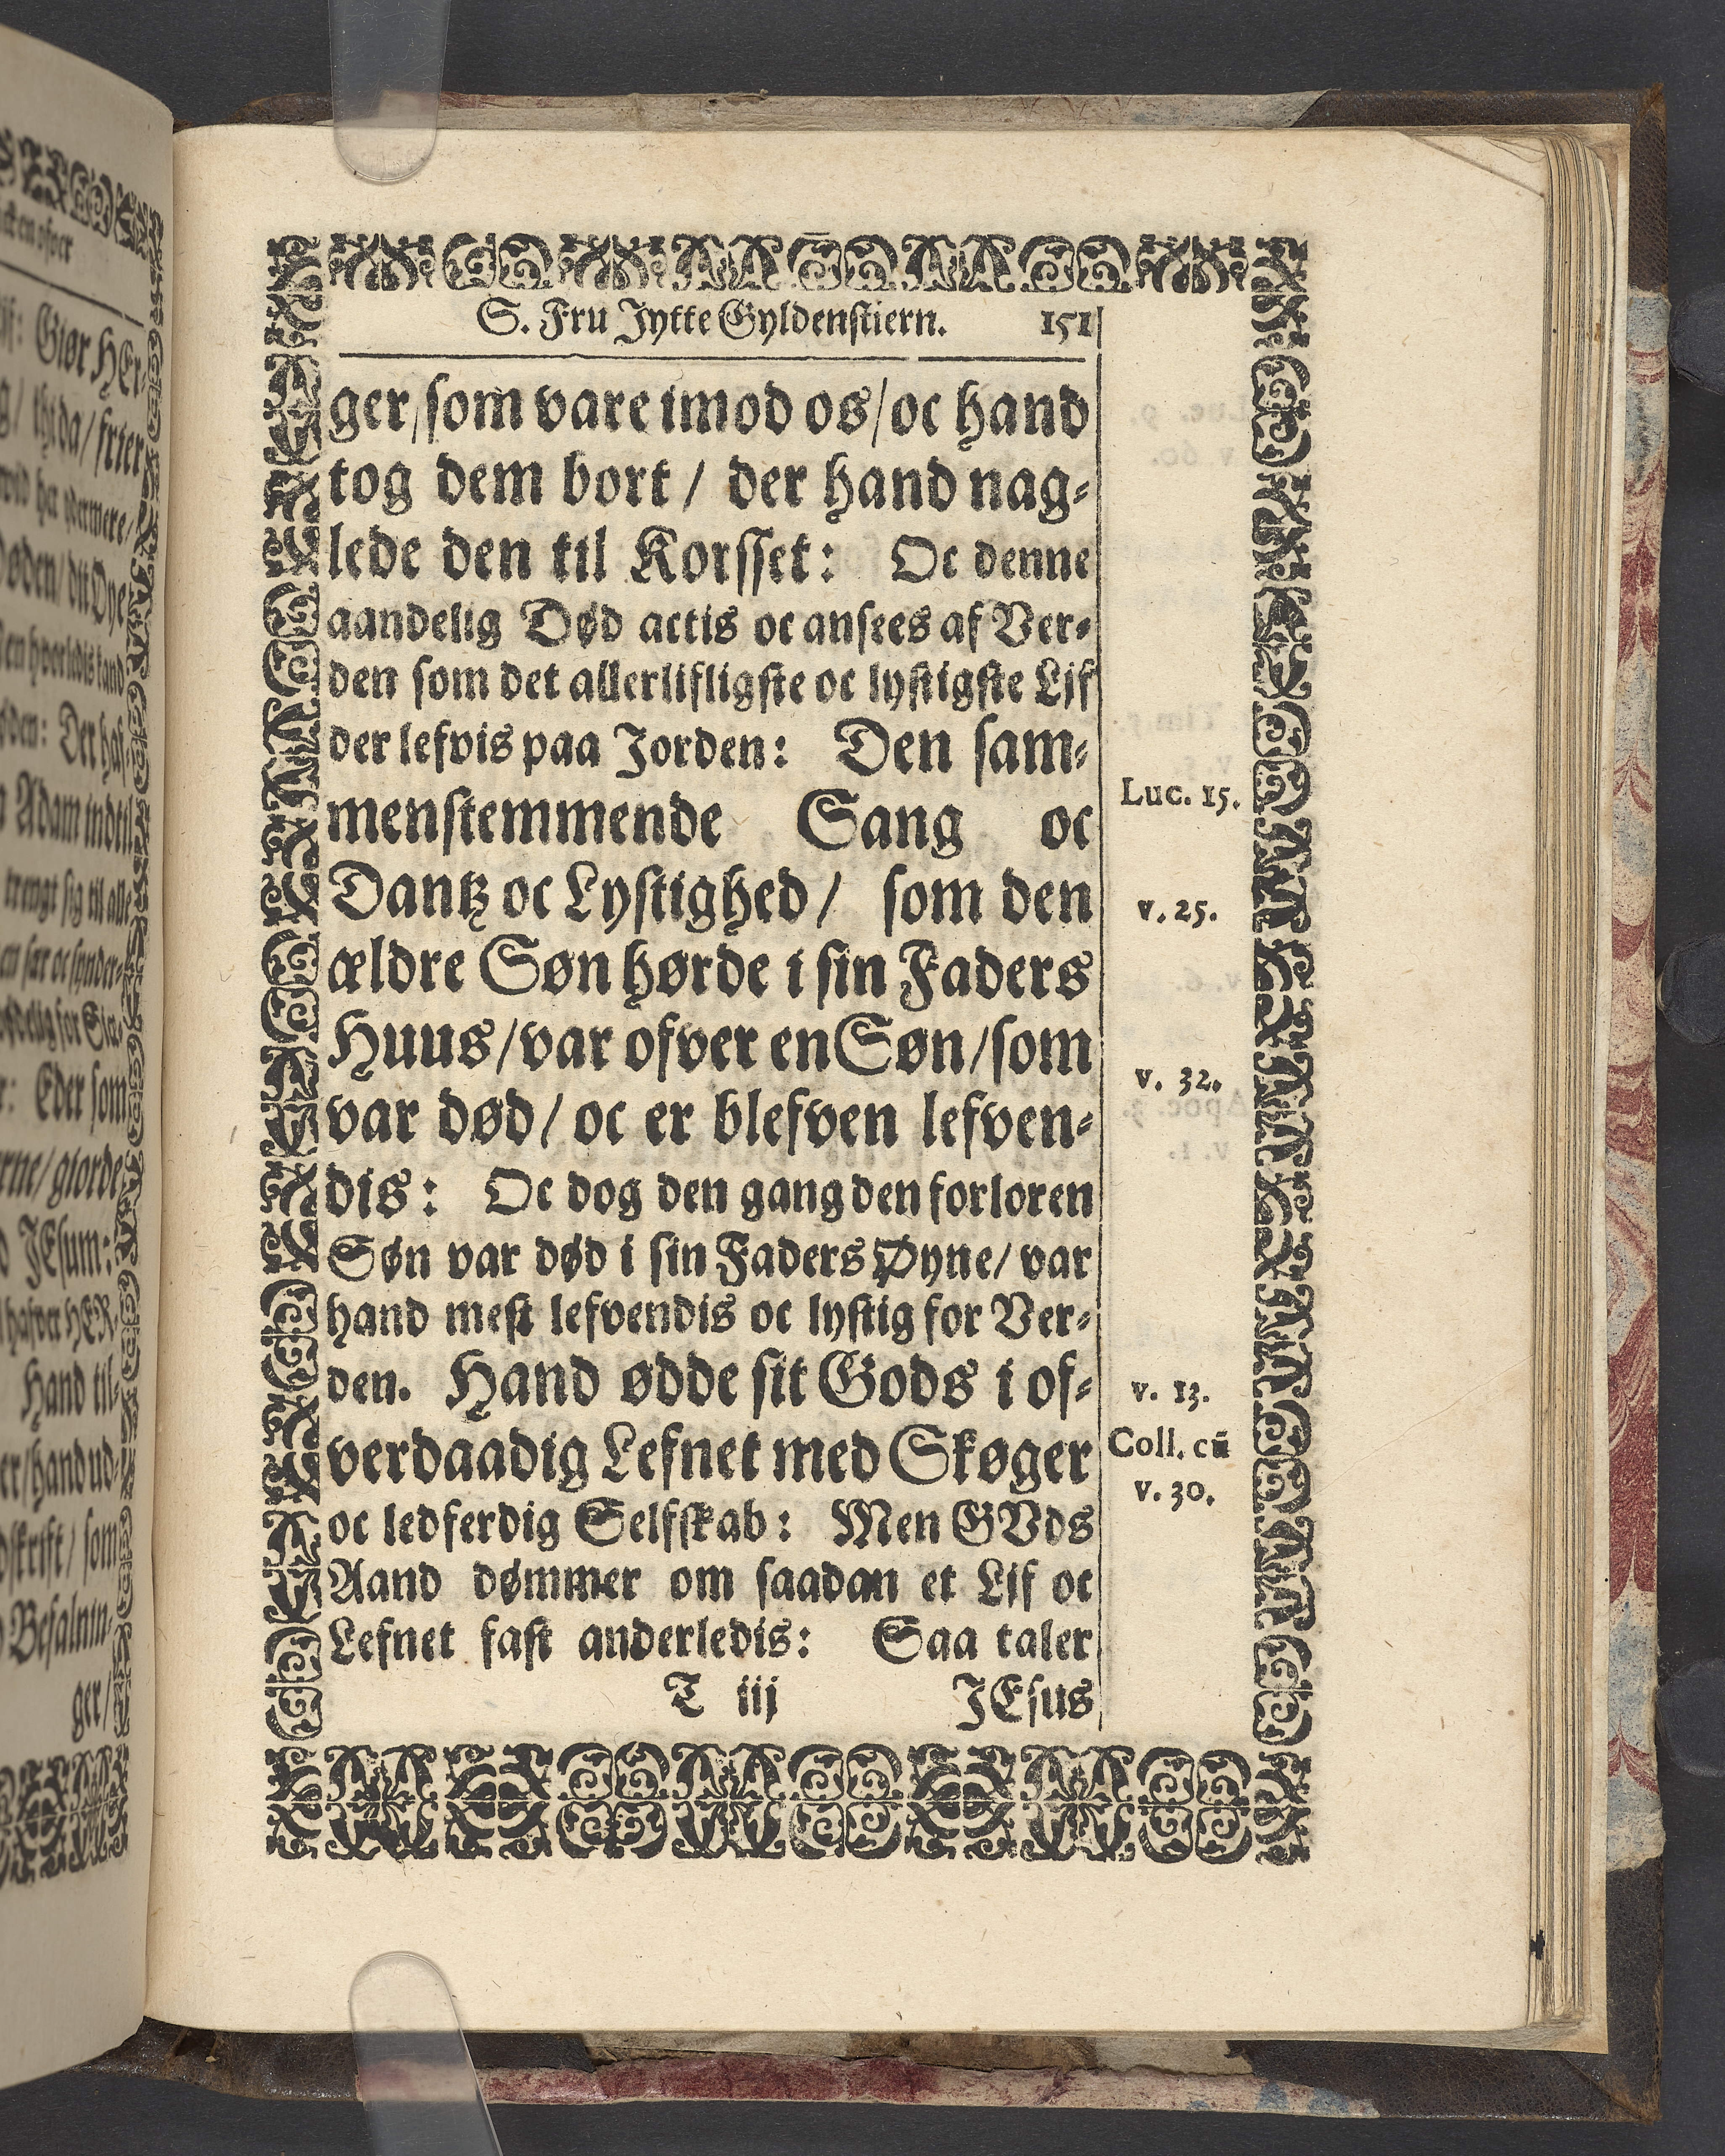 S. Fru Jytte Gyldenstiern. 151
ger/som vare imod os/oc hand
tog dem bort / der hand nag-
lede den til Korsset: Oc denne
aandelig Død actis oc ansees af Ver-
den som det allerlifligste oc lystigste Lif
der lefvis paa Jorden: Den sam-
menstemmende Sang oc
Dantz oc Lystighed / som den
ældre Søn hørde i sin Faders
Huus/var ofver en Søn/som
var død/ oc er blefven lefven-
dis: Oc dog den gang den forloren
Søn var død i sin Faders Øyne/ var
hand mest lefvendis oc lystig for Ver-
den. Hand ødde sit Gods i of-
verdaadig Lefnet med Skøger
oc ledferdig Selfskab: Men GVds
Aand dømmer om saadan et Lif oc
Lefnet fast anderledis: Saa taler
T iij JEsus
Luc. 15.
v. 25.
v. 32.
v. 13.
Coll. cũ
v. 30.